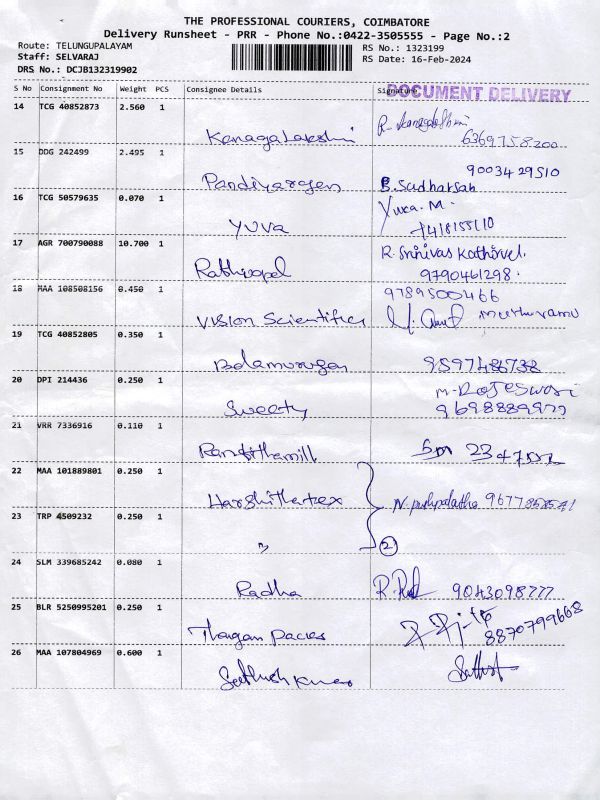 THE PROFESSIONAL COURIERS, COIMBATORE
Delivery Runsheet - PRR - Phone No.:0422-3505555 - Page No.:2
Route: TELUNGUPALAYAM
RS No.: 1323199
Staff: SELVARAJ
RS Date: 16-Feb-2024
DRS No.: DCJB132319902
S No Consignment No Weight PCS Consignee Details Signature
DOCUMENT DELIVERY
14 TCG 40852873 2.560 1
Kanagalakshmi 6369758200
15 DDG 242499 2.495 1
9003429510
Pandiyarajen B. Sudharsan
16 TCG 50579635 0.070 1
Yuva. M.
YUVA
17 AGR 700790088 10.700 1
R. Srinivas Kathirvel.
9790461298.
18 MAA 108508156 0.450 1
9789500466
Vision Scientific
19 TCG 40852805 0.350 1
Balamurugan
20 DPI 214436 0.250 1
M. Rajeswari
Sweety
21 VRR 7336916 0.110 1
22 MAA 101889801 0.250 1
Harshitha tex N. pushpalatha
23 TRP 4509232 0.250 1
" 2
24 SLM 339685242 0.080 1
Radha 9043098777
25 BLR 5250995201 0.250 1
8870799668
26 MAA 107804969 0.600 1
Sathish Kumar